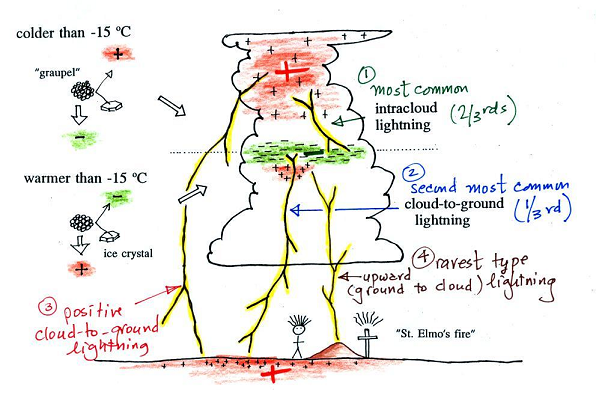 colder than -15 °C
+
"graupel"
-
warmer than -15 °C
-
ice crystal
+
① most common
intracloud (2/3rds)
lightning
② second most common
cloud-to-ground
lightning (1/3rd)
④ rarest type
upward
(ground to cloud) lightning
③ positive
cloud-to-ground
lightning
"St. Elmo's fire"
+